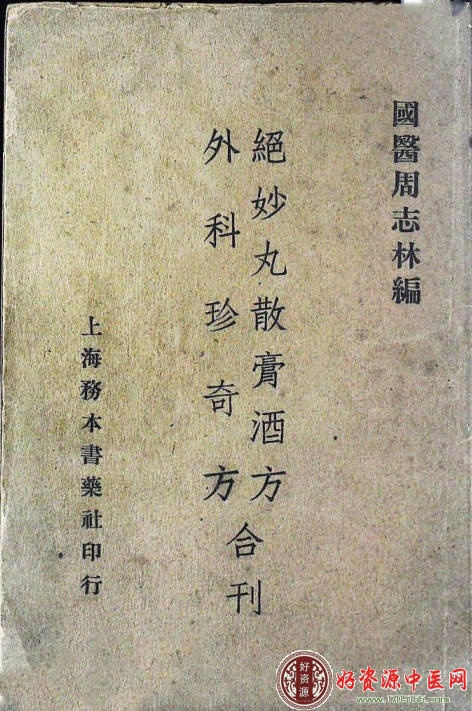 國醫周志林編
絕妙丸散膏酒方
外科珍奇方
合刊
上海務本書藥社印行
好资源
好资源中医网